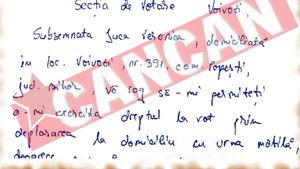 Secția de Votare Voivozi
Subsemnata Juca Veronica domiciliată
în loc. Voivozi, nr. 391, com. Popești,
jud. Bihor, vă rog să-mi permiteți
a-mi exercita dreptul la vot prin
deplasarea la domiciliu cu urna mobilă,
deoarece
CANCAN